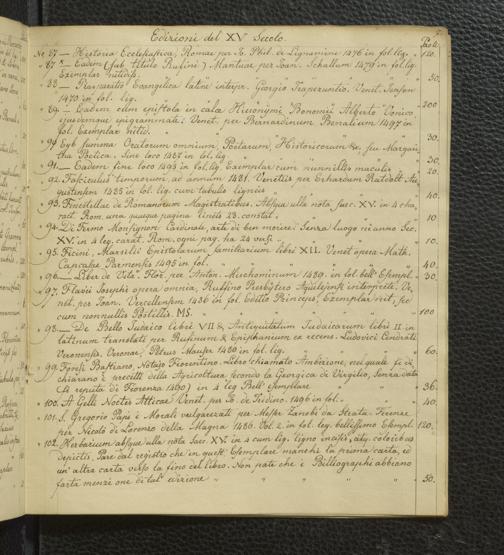 Edizioni del XV Secolo.
Paoli
No 87 — Historia Ecclesiastica, Romae per Jo. Phil. de Lignamine 1476 in fol. lig. 120.
" 87* — Eadem (sub titulo Rufini) Mantuae per Joan. Schallum 1479 in fol. lig.
Exemplar nitidiss. 50.
" 88 — Evangelica latine interpr. Georgio Trapezuntio. Venet. Jenson
1470 in fol. lig. 200
" 89 — Eadem cum epistola in calce Hieronymi Bononii Alberto
ejusdemque epigrammate: Venet. per Bernardinum Benalium 1497 in
fol. Exemplar nitid. 30.
" 90 summa: Oratorum omnium, Poetarum, Historicorum &c.
Poetica. Sine loco in fol. lig. 30.
" 91 — Eadem sine loco 1493 in fol. lig. Exemplar cum nonnullis maculis 20.
" 92. Fasciculus temporum ad annum 1481. Venetiis per Erhardum Ratdolt Au
gustensem 1485 in fol. lig. cum tabulis ligneis 40.
" 93. Finestellae de Romanorum Magistratibus. Absque ulla nota saec. XV. in 4 cha,
ract. Rom. una quaque pagina lineis 23. constat. 10.
" 94. Di Fermo Monsignor Cardinale, arte di ben morire: Senza luogo ne anno Sec.
XV. in 4 leg. carat. Rom. ogni pag. ha 24 versi. 10.
" 95. Ficini, Marsilii Epistolarum familiarium libri XII. Venet. opera Math.
Capcasae Parmensis 1495 in fol. 40.
" 96 — Liber de Vita. Flor. per Anton. Mischominum 1489. in fol. bell' Esempl. 30.
" 97. Flavii Josephi opera omnia, Ruffino Presbytero Aquilejensi interprete. Ve,
net. per Joan. Vercellensem 1486 in fol. Editio Princeps, Exemplar nit., sed
cum nonnullis Postillis. MS. 100
" 98 — De Bello Judaico libri VII & Antiquitatum Judaicarum libri II in
latinum translati per Rufinum & Epiphanium ex recens. Ludovici Cendrati
Veronensis. Veronae, Petrus Maufer 1480 in fol. leg. 60.
" 99. Fonzi Bastiano, Notajo Fiorentino. Libro chiamato Ambizione, nei quale si di
chiarano i precetti della Agricoltura secondo la Georgica di Virgilio, Senza data
(si reputa di Fiorenza 1490) in 4 leg. Bell' Esemplare 36.
" 100. A. Gelli Noctes Atticae. Venet. per Jo. de Tridino. 1496 in fol. 40.
" 101. S. Gregorio Papa i Morali volgarizzati per Messer Zanobi da Strata. Firenze
per Nicolò di Lorenzo della Magna 1486. Vol. 2. in fol. leg. bellissimo Esempl. 120.
" 102. Herbarium absque ulla nota Saec. XV in 4 cum lig. ligno incisis, atq. coloribus
depictis. Pare dal registro che in quest' Esemplare manchi la prima carta, ed
un' altra carta verso la fine del libro. Non pare che i Bibliographi abbiano
fatta menzione di tal' edizione 50.